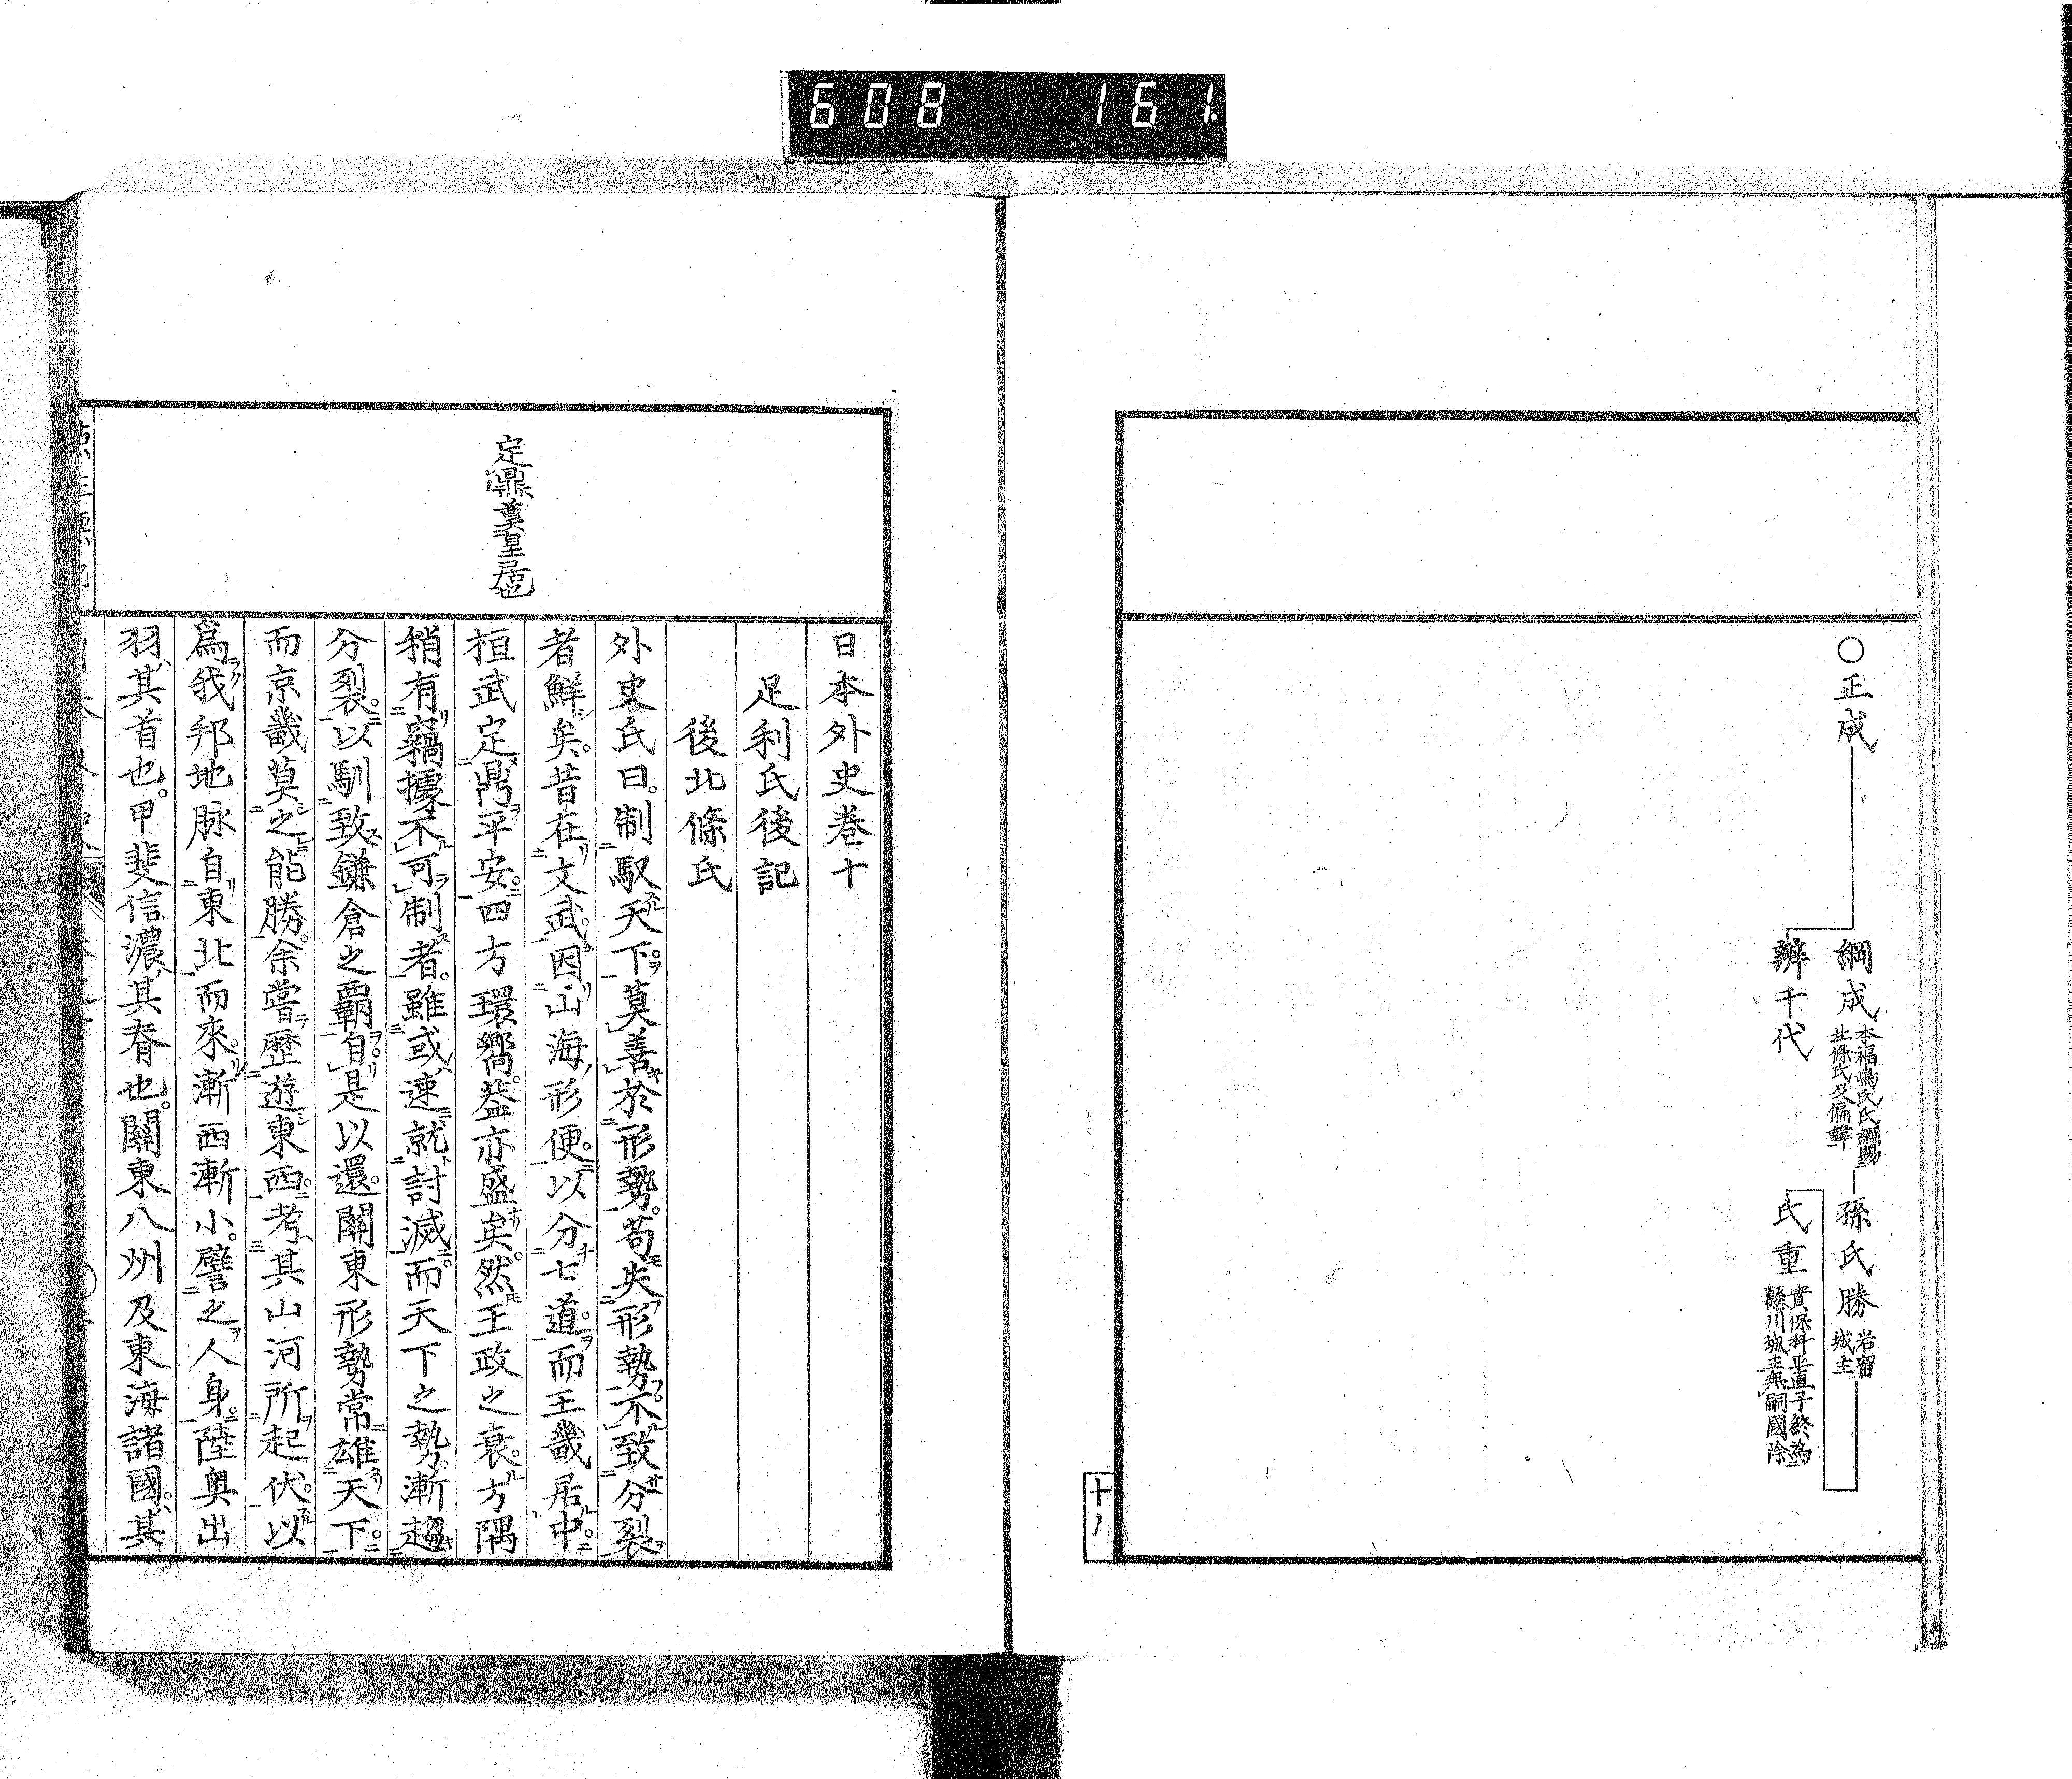 608 161
○正成
綱成
本福嶋氏氏綱賜
北條氏及偏諱
孫氏勝
岩留
城主
辨千代
氏重
實保科正直子終為
懸川城主無嗣國除
十
定鼎奠皇居也
日本外史卷十
足利氏後記
後北條氏
外史氏曰。制馭天下。莫善於形勢。苟失形勢。不致分裂
者鮮矣。昔在文武。因山海形便。以分七道。而王畿居中。
桓武定鼎平安。四方環嚮。葢亦盛矣。然王政之衰。方隅
稍有竊據不可制者。雖或速就討滅。而天下之勢漸趨
分裂。以馴致鎌倉之霸。自是以還。關東形勢常雄天下。
而京畿莫之能勝。余嘗歷遊東西。考其山河所起伏。以
爲我邦地脉自東北而來。漸西漸小。譬之人身。陸奥出
羽其首也。甲斐信濃其脊也。關東八州及東海諸國。其